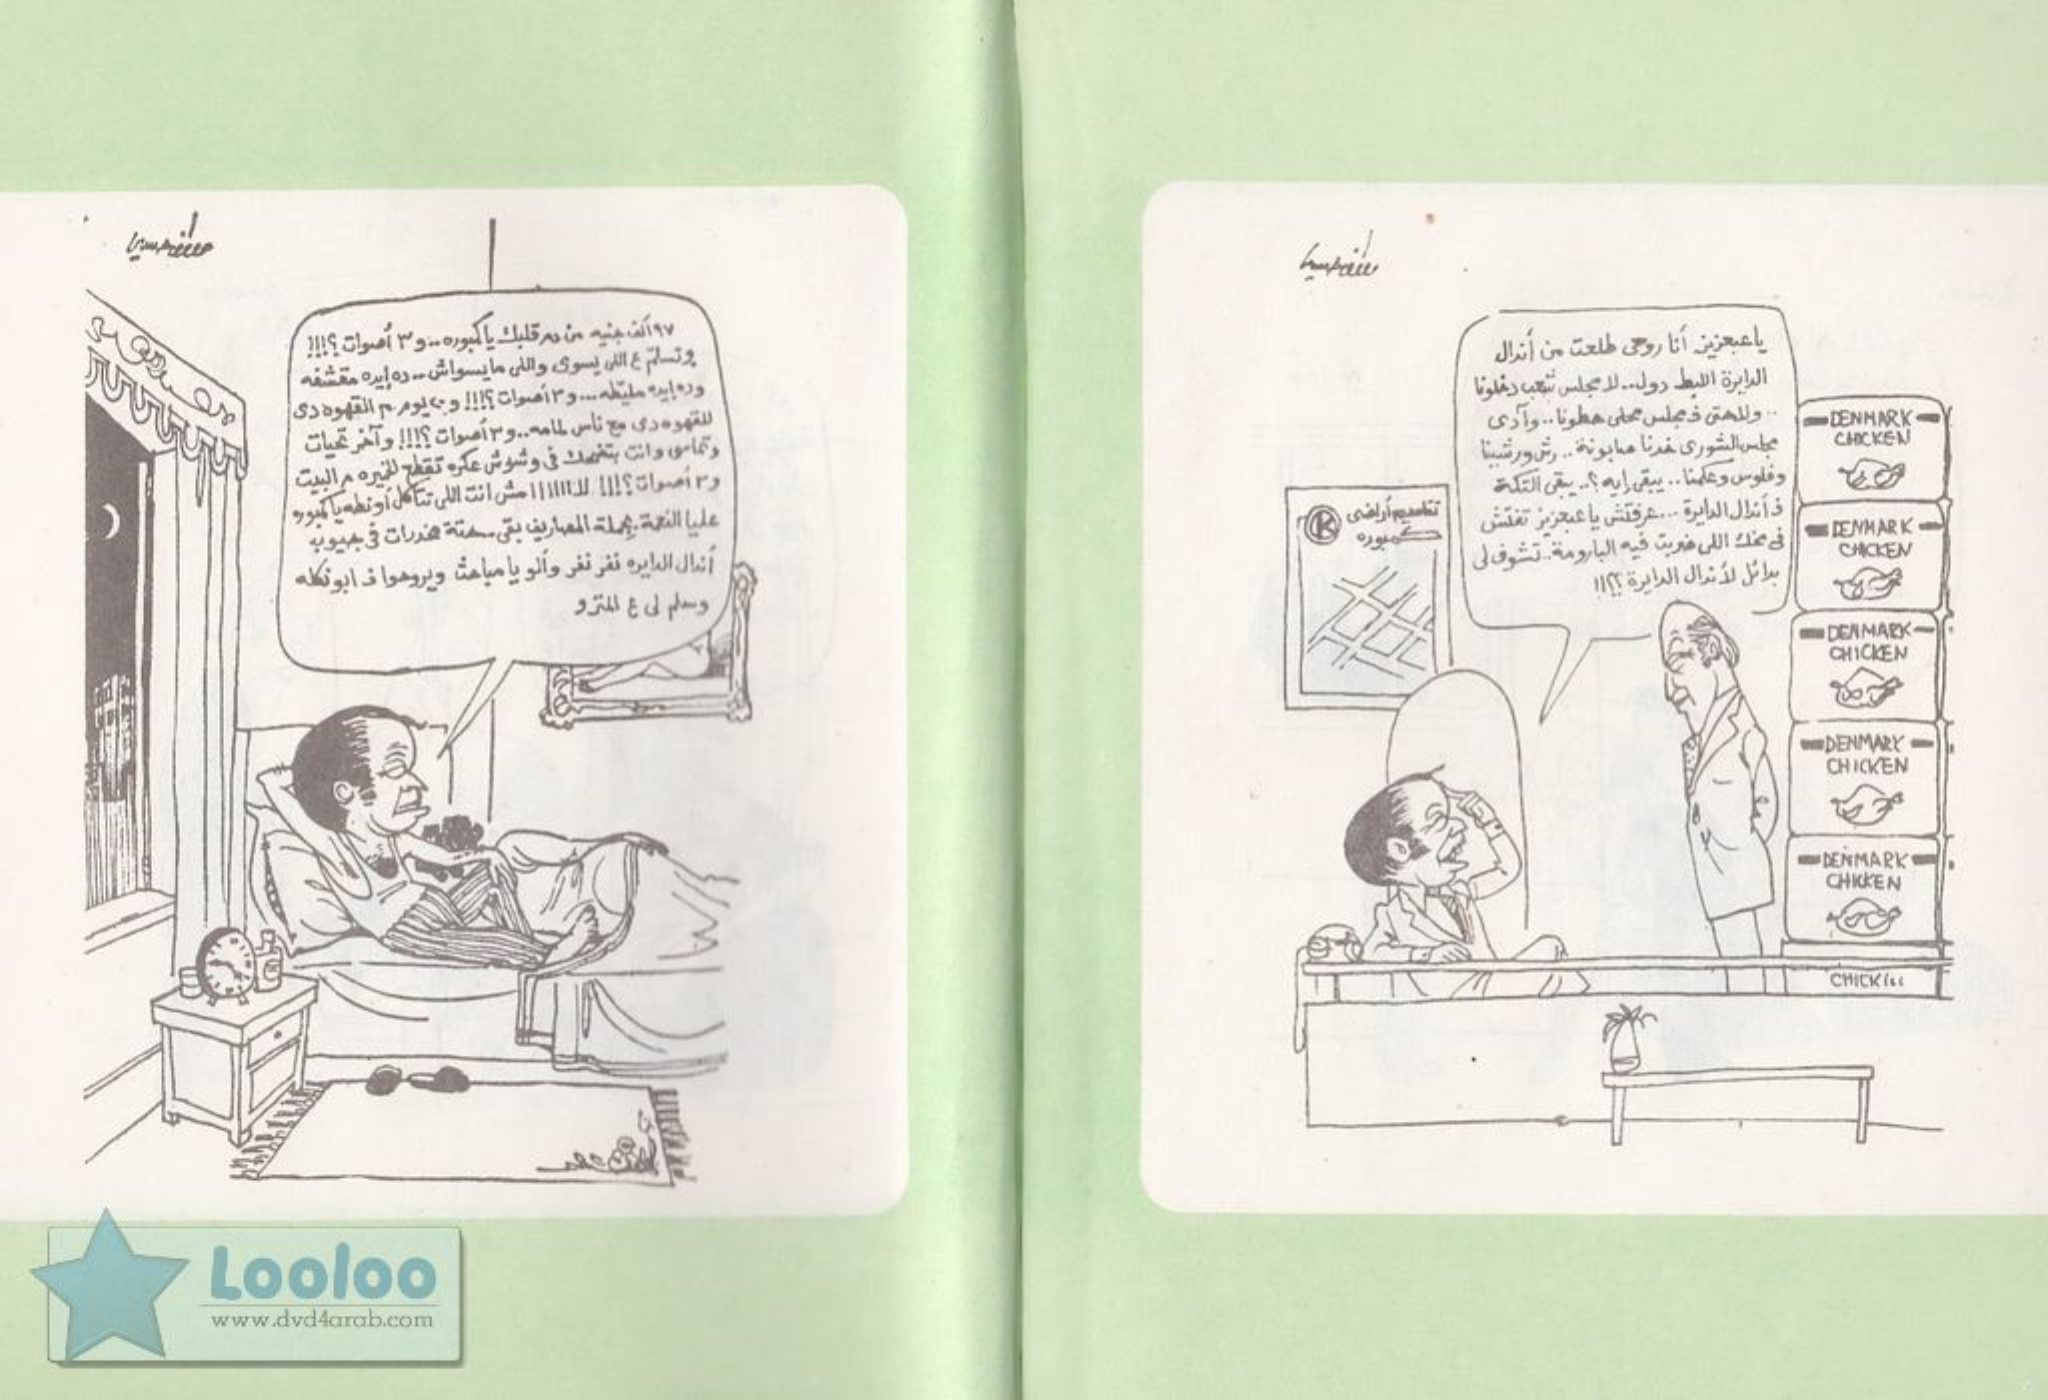 ياعبعزيز أنا روحى طلعت من أندال
الدايرة اللبط دول.. لا مجلس شعب دخلونا
.. ولاحتى فـ مجلس محلى حطونا.. وآدى
مجلس الشورى خدنا صابونة.. رش ورشينا
وفلوس وعكمنا.. يبقى إيه؟.. يبقى التكة
فـ أندال الدايرة... عرفتش ياعبعزيز تفتش
فى مخك اللى ضربت فيه البارومة.. تشوف لى
بدائل لأندال الدايرة؟؟!!
تقاسيم أراضى
كمبوره
DENMARK
CHICKEN
DENMARK
CHICKEN
DENMARK
CHICKEN
DENMARK
CHICKEN
DENMARK
CHICKEN
CHICK
٩٧ ألف جنيه من دم قلبك يا كمبوره.. و ٣ أصوات؟!!!
وتسلم ع اللى يسوى واللى مايسواش.. ده إيده مقشفه
وده إيده مليطه... و ٣ أصوات؟!!! يوم م القهوه دى
للقهوه دى مع ناس لمامه.. و ٣ أصوات؟!!! وآخر تحيات
وتماسى وانت بتضحك فى وشوش عكره تقطع الخميره م البيت
و ٣ أصوات؟!!! مش انت اللى تتاكل أونطه يا كمبوره
عليا النعمة بجملة المصاريف بقى حتة مخدرات فى جيوب
أندال الدايره نفر نفر وألو يا مباحث ويروحوا فـ ابو نكله
وسلم لى ع المترو
Looloo
www.dvd4arab.com